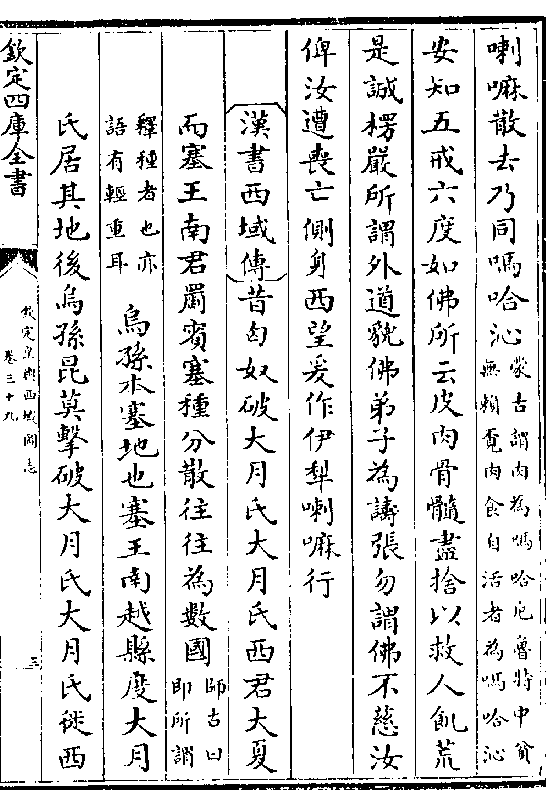 喇嘛散去乃同嗎哈沁蒙古謂肉為嗎哈厄魯特中貧
無賴覔肉食自活者為嗎哈沁
安知五戒六度如佛所云皮肉骨髓盡捨以救人飢荒
是誠楞嚴所謂外道貌佛弟子為譸張勿謂佛不慈汝
俾汝遭喪亡側身西望爰作伊犂喇嘛行
漢書西域傳昔匈奴破大月氏大月氏西君大夏
而塞王南君罽賓塞種分散往往為數國師古曰
即所謂
釋種者也亦
語有輕重耳
烏孫本塞地也塞王南越縣度大月
氏居其地後烏孫昆莫擊破大月氏大月氏徙西
欽定四庫全書
欽定皇輿西域圖志
卷三十九
三